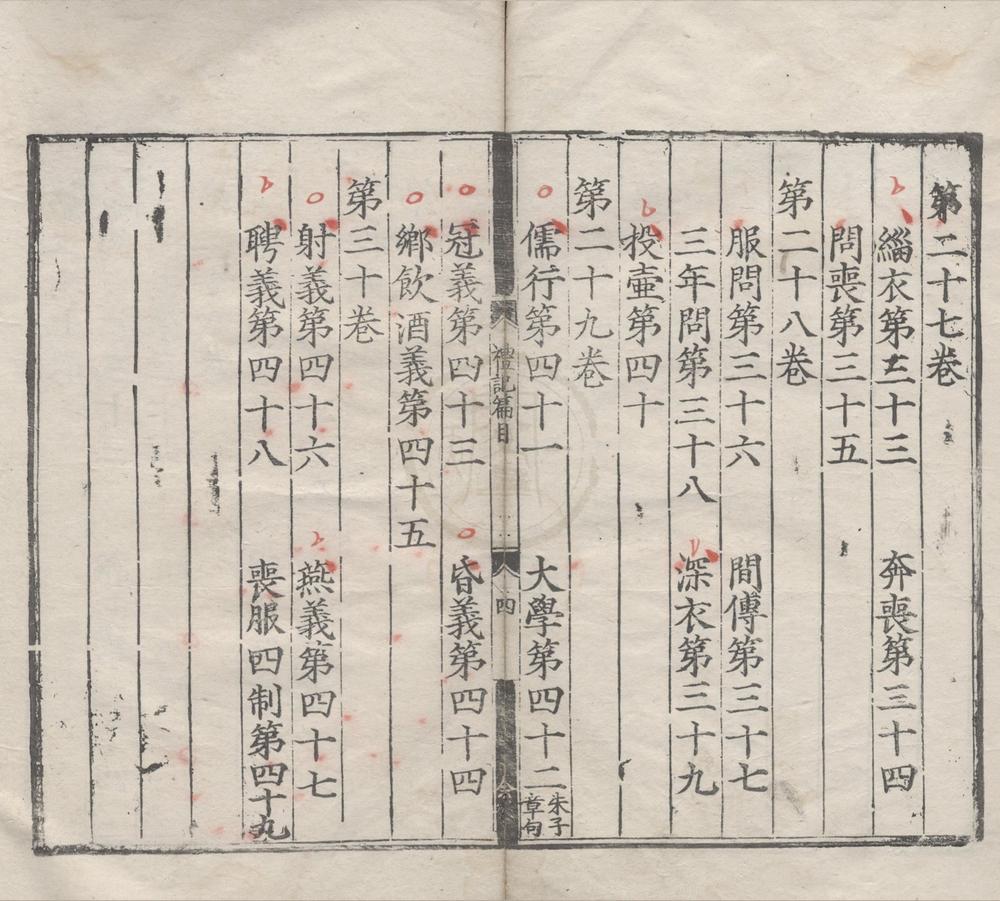 第二十七卷
緇衣第三十三 奔喪第三十四
問喪第三十五
第二十八卷
服問第三十六 間傳第三十七
三年問第三十八 深衣第三十九
投壺第四十
第二十九卷
儒行第四十一 大學第四十二朱子章句
禮記篇目 四
冠義第四十三 昏義第四十四
鄉飲酒義第四十五
第三十卷
射義第四十六 燕義第四十七
聘義第四十八 喪服四制第四十九